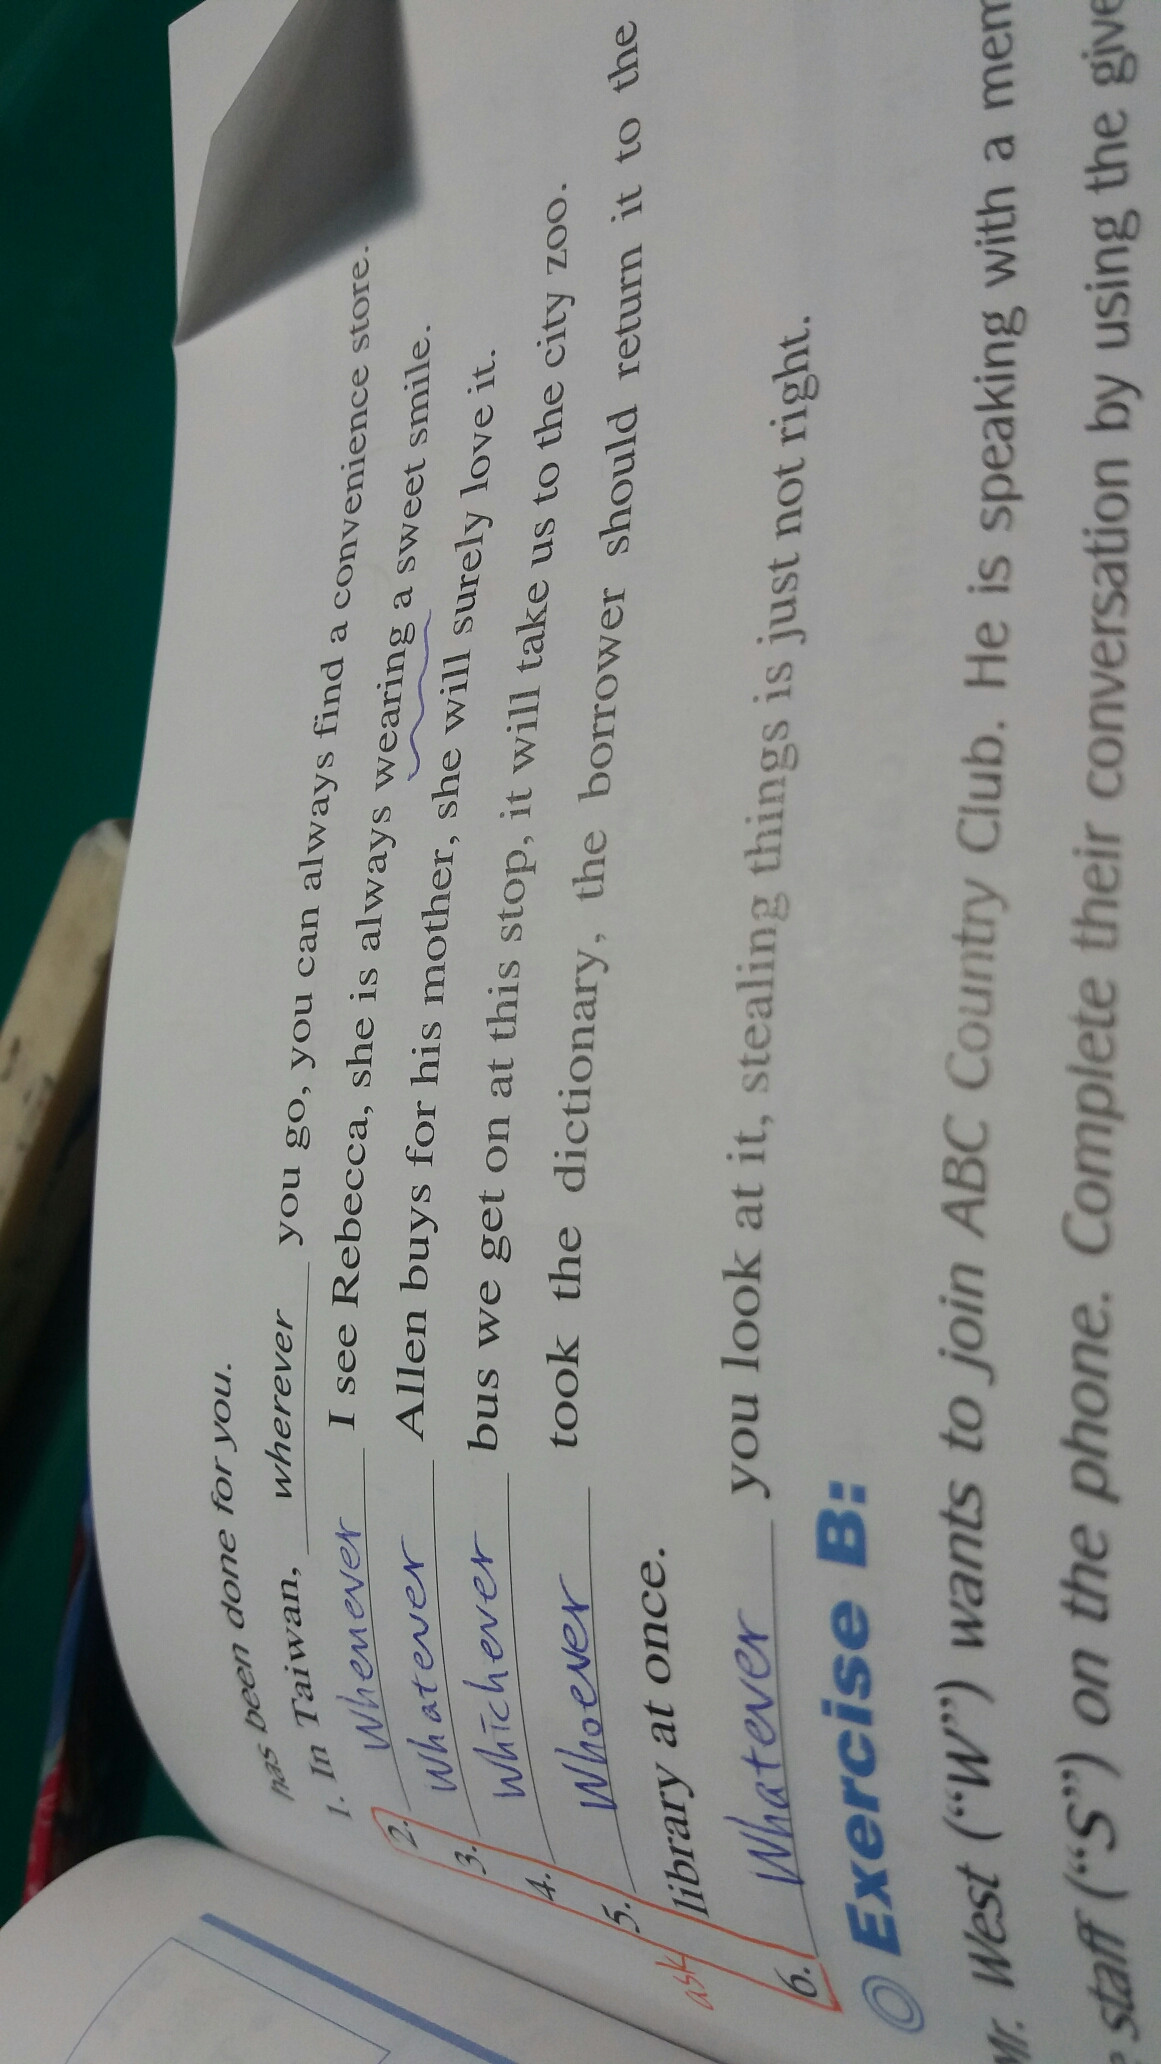 has been done for you.
1. In Taiwan, wherever you go, you can always find a convenience store.
2. Whenever I see Rebecca, she is always wearing a sweet smile.
3. Whatever Allen buys for his mother, she will surely love it.
4. Whichever bus we get on at this stop, it will take us to the city zoo.
5. Whoever took the dictionary, the borrower should return it to the
ask library at once.
6. Whatever you look at it, stealing things is just not right.
Exercise B:
Mr. West ("W") wants to join ABC Country Club. He is speaking with a mem
staff ("S") on the phone. Complete their conversation by using the give